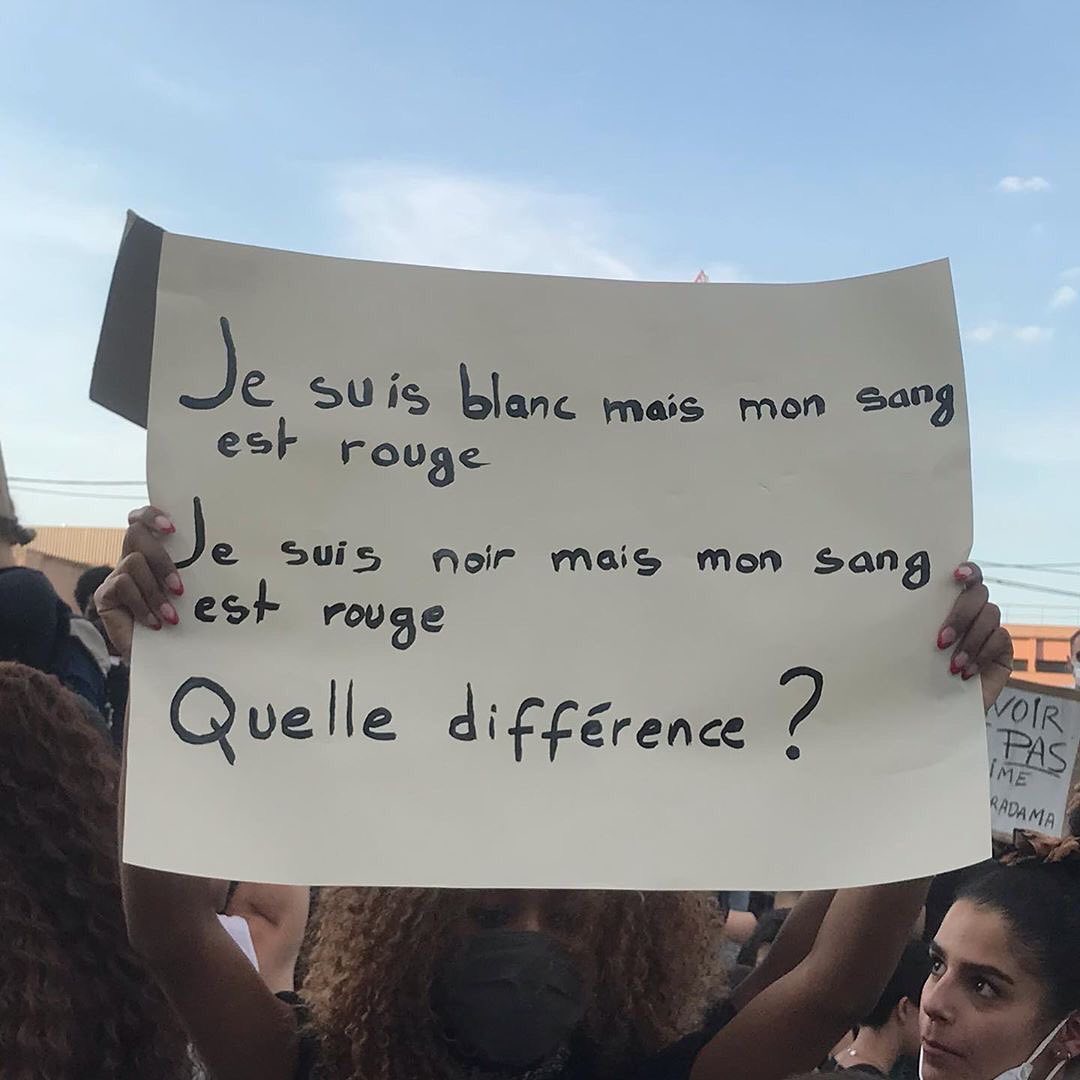 Je suis blanc mais mon sang
est rouge
Je suis noir mais mon sang
est rouge
Quelle différence ?
VOIR
PAS
IME
RADAMA